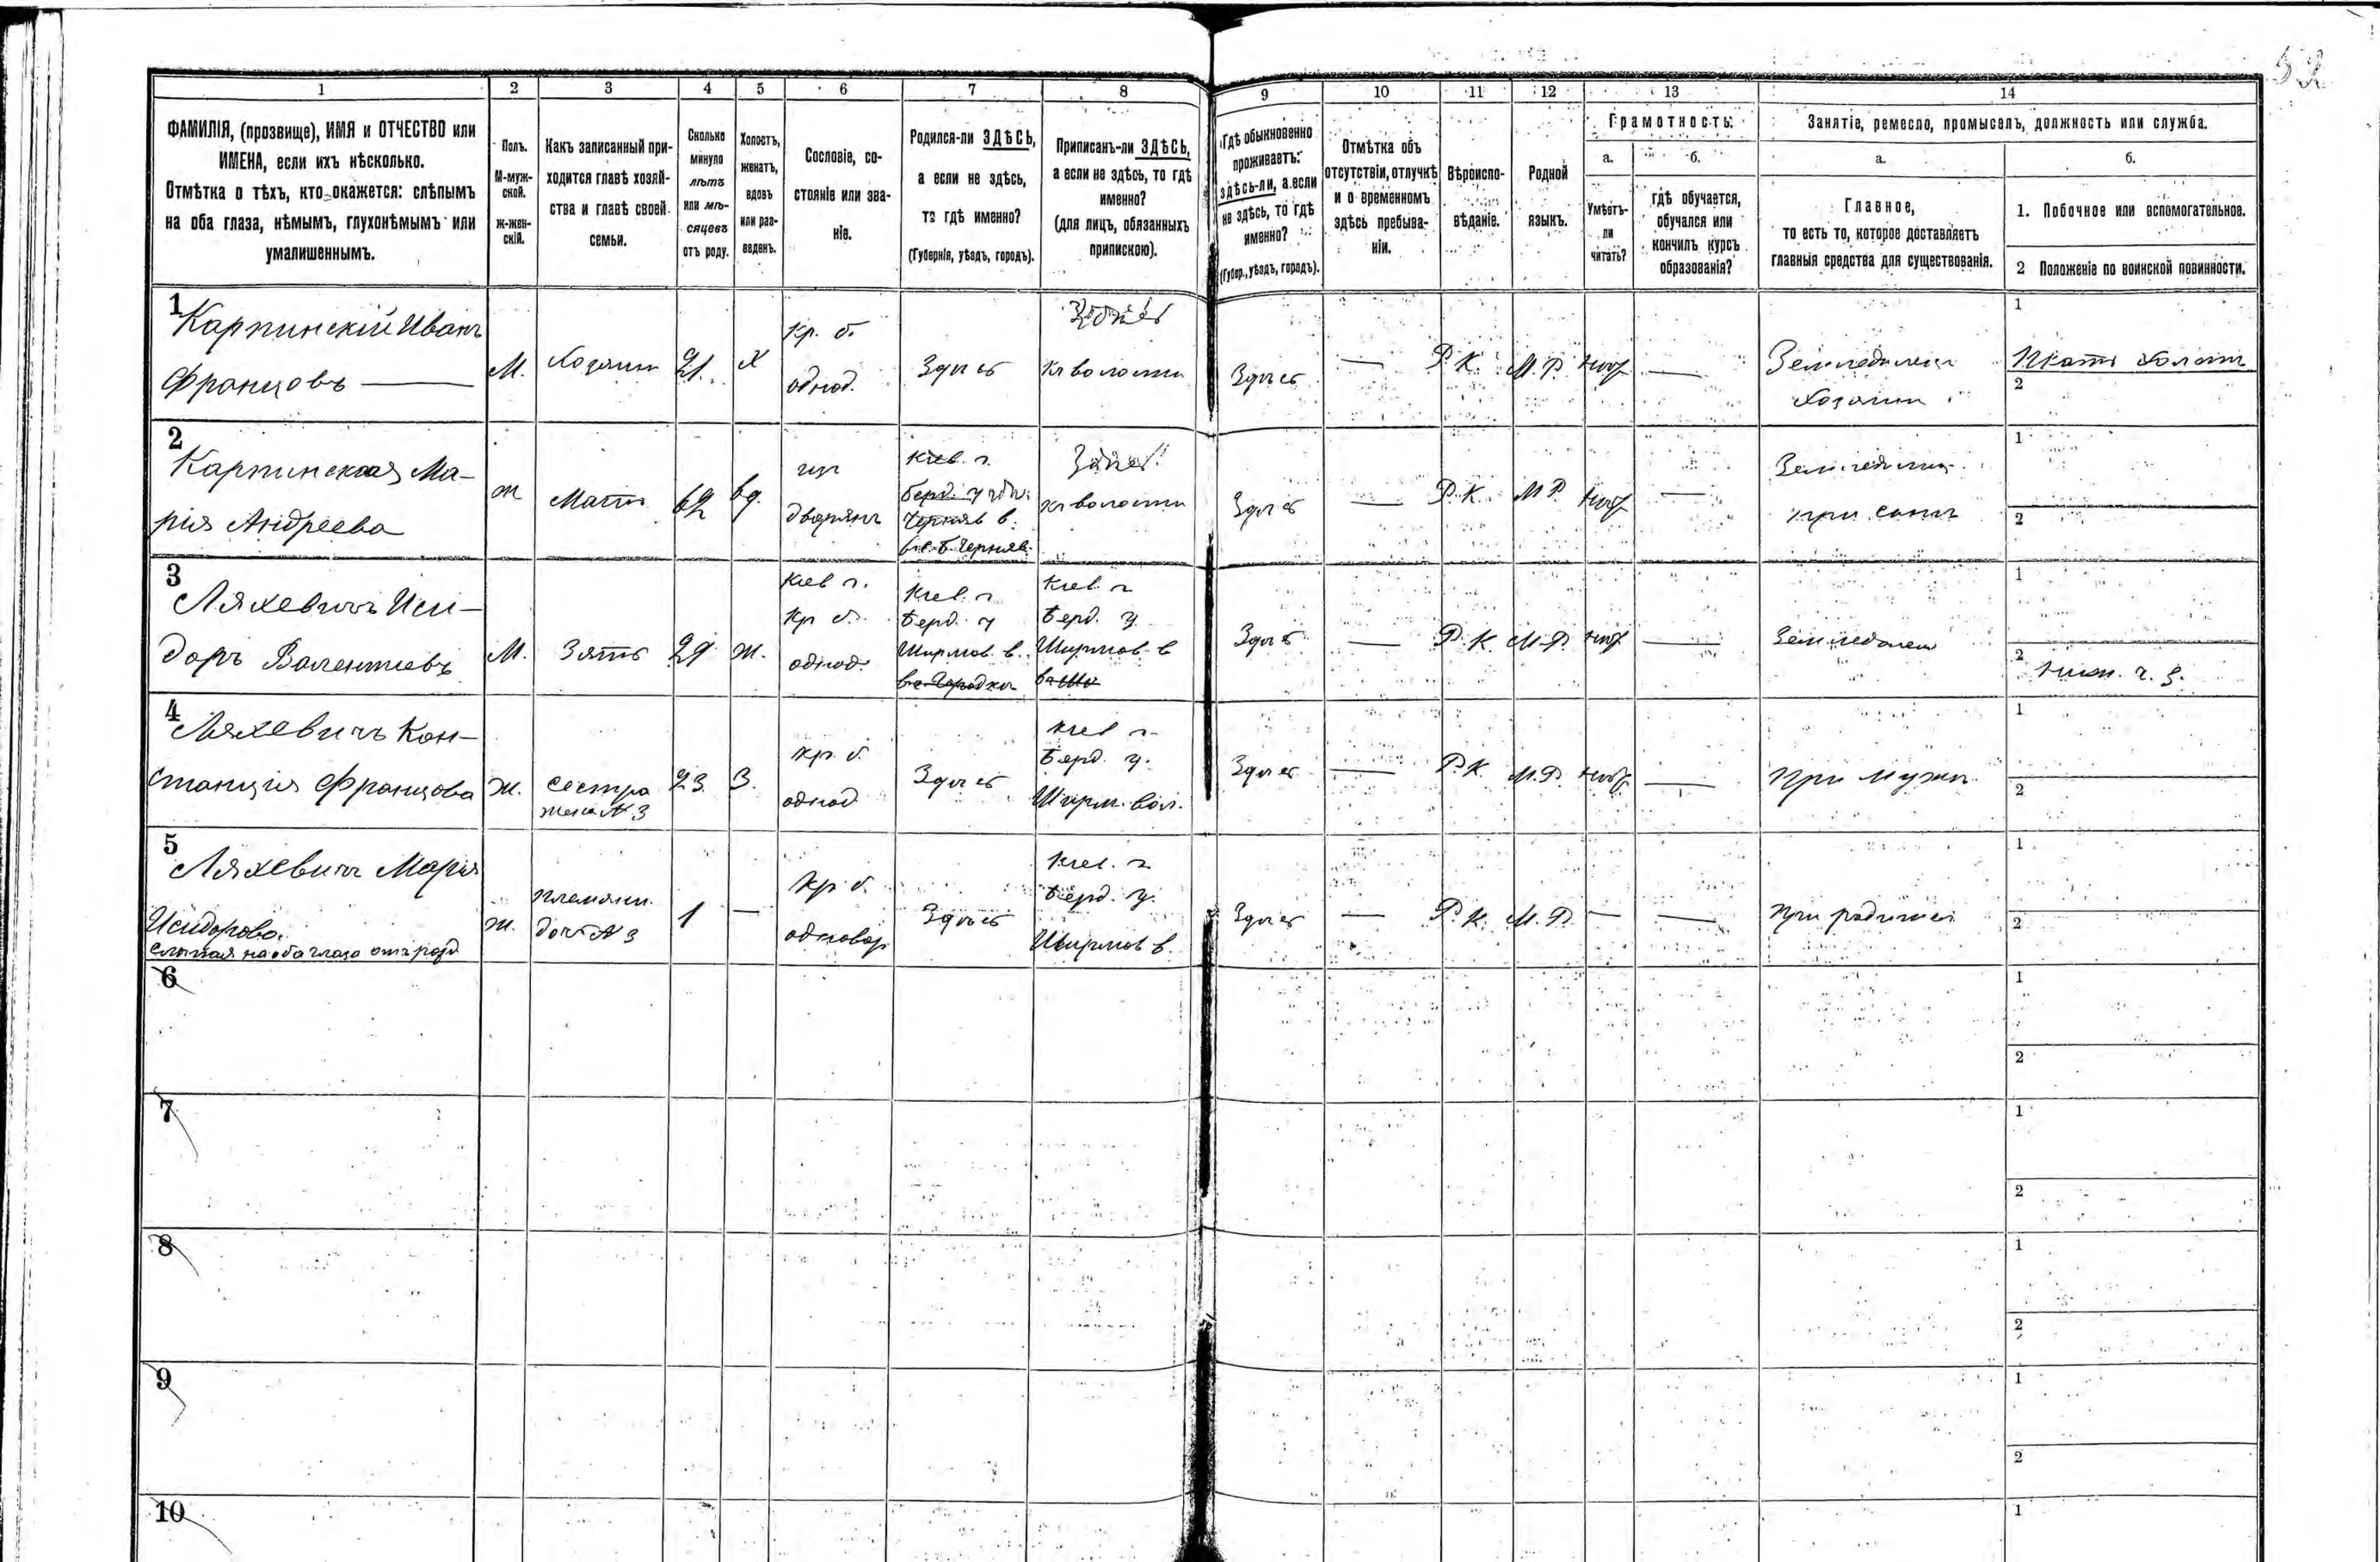 52
1 2 3 4 5 6 7 8 9 10 11 12 13 14
ФАМИЛІЯ, (прозвище), ИМЯ и ОТЧЕСТВО или
ИМЕНА, если ихъ нѣсколько.
Отмѣтка о тѣхъ, кто окажется: слѣпымъ
на оба глаза, нѣмымъ, глухонѣмымъ или
умалишеннымъ.
Полъ.
М-муж-
ской.
ж-жен-
скій.
Какъ записанный при-
ходится главѣ хозяй-
ства и главѣ своей
семьи.
Сколько
минуло
лѣтъ
или мѣ-
сяцевъ
отъ роду.
Холостъ,
женатъ,
вдовъ
или раз-
веденъ.
Сословіе, со-
стояніе или зва-
ніе.
Родился-ли ЗДѢСЬ,
а если не здѣсь,
то гдѣ именно?
(Губернія, уѣздъ, городъ).
Приписанъ-ли ЗДѢСЬ,
а если не здѣсь, то гдѣ
именно?
(для лицъ, обязанныхъ
припискою).
Гдѣ обыкновенно
проживаетъ:
здѣсь-ли, а если
не здѣсь, то гдѣ
именно?
(Губер., уѣздъ, городъ).
Отмѣтка объ
отсутствіи, отлучкѣ
и о временномъ
здѣсь пребыва-
ніи.
Вѣроиспо-
вѣданіе.
Родной
языкъ.
Грамотность.
а.
Умѣетъ-
ли
читать?
б.
гдѣ обучается,
обучался или
кончилъ курсъ
образованія?
Занятіе, ремесло, промыселъ, должность или служба.
а.
Главное,
то есть то, которое доставляетъ
главныя средства для существованія.
б.
1. Побочное или вспомогательное.
2 Положеніе по воинской повинности.
1
Карпинскій Иванъ
Францовъ —
М.
Хозяинъ
21.
Х
Кр. б.
однод.
Здѣсь
Здѣсь
къ волости
Здѣсь
—
Р. К.
М. Р.
—
Земледѣлец
Хозяинъ
1
2
2
Карпинская Ма-
рія Андреева
ж
Мать
62
вд.
дворянъ
Кіев. г.
Берд. у
Черняв в.
в с. Б. Черняв.
Здѣсь
къ волости
Здѣсь
—
Р. К.
М Р.
—
при сынѣ
1
2
3
Ляхевичъ Иси-
доръ Валентіевъ
М.
Зять
29
Ж.
Кіев г.
Кр б.
однод.
Кіев. г
Берд. у
Ширмов. в.
Кіев. г
Берд. у.
Ширмов. в
Здѣсь
—
Р. К.
М. Р.
—
Земледѣлец
1
2
4
Ляхевичъ Кон-
станція Францова
Ж.
сестра
жена № 3
23.
З.
кр. б.
однод
Здѣсь
Кіев г.
Берд. у.
Ширм. вол.
Здѣсь
—
Р. К.
М. Р.
—
при мужѣ
1
2
5
Ляхевичъ Марія
Исидорова.
слѣпая на оба глаза отъ рожд
ж.
племянн.
доч № 3
1
—
Кр. б.
однодвор
Здѣсь
Кіев. г.
Берд. у.
Ширмов в.
Здѣсь
—
Р. К.
М. Р.
—
—
при родителѣ
1
2
6
1
2
7
1
2
8
1
2
9
1
2
10
1